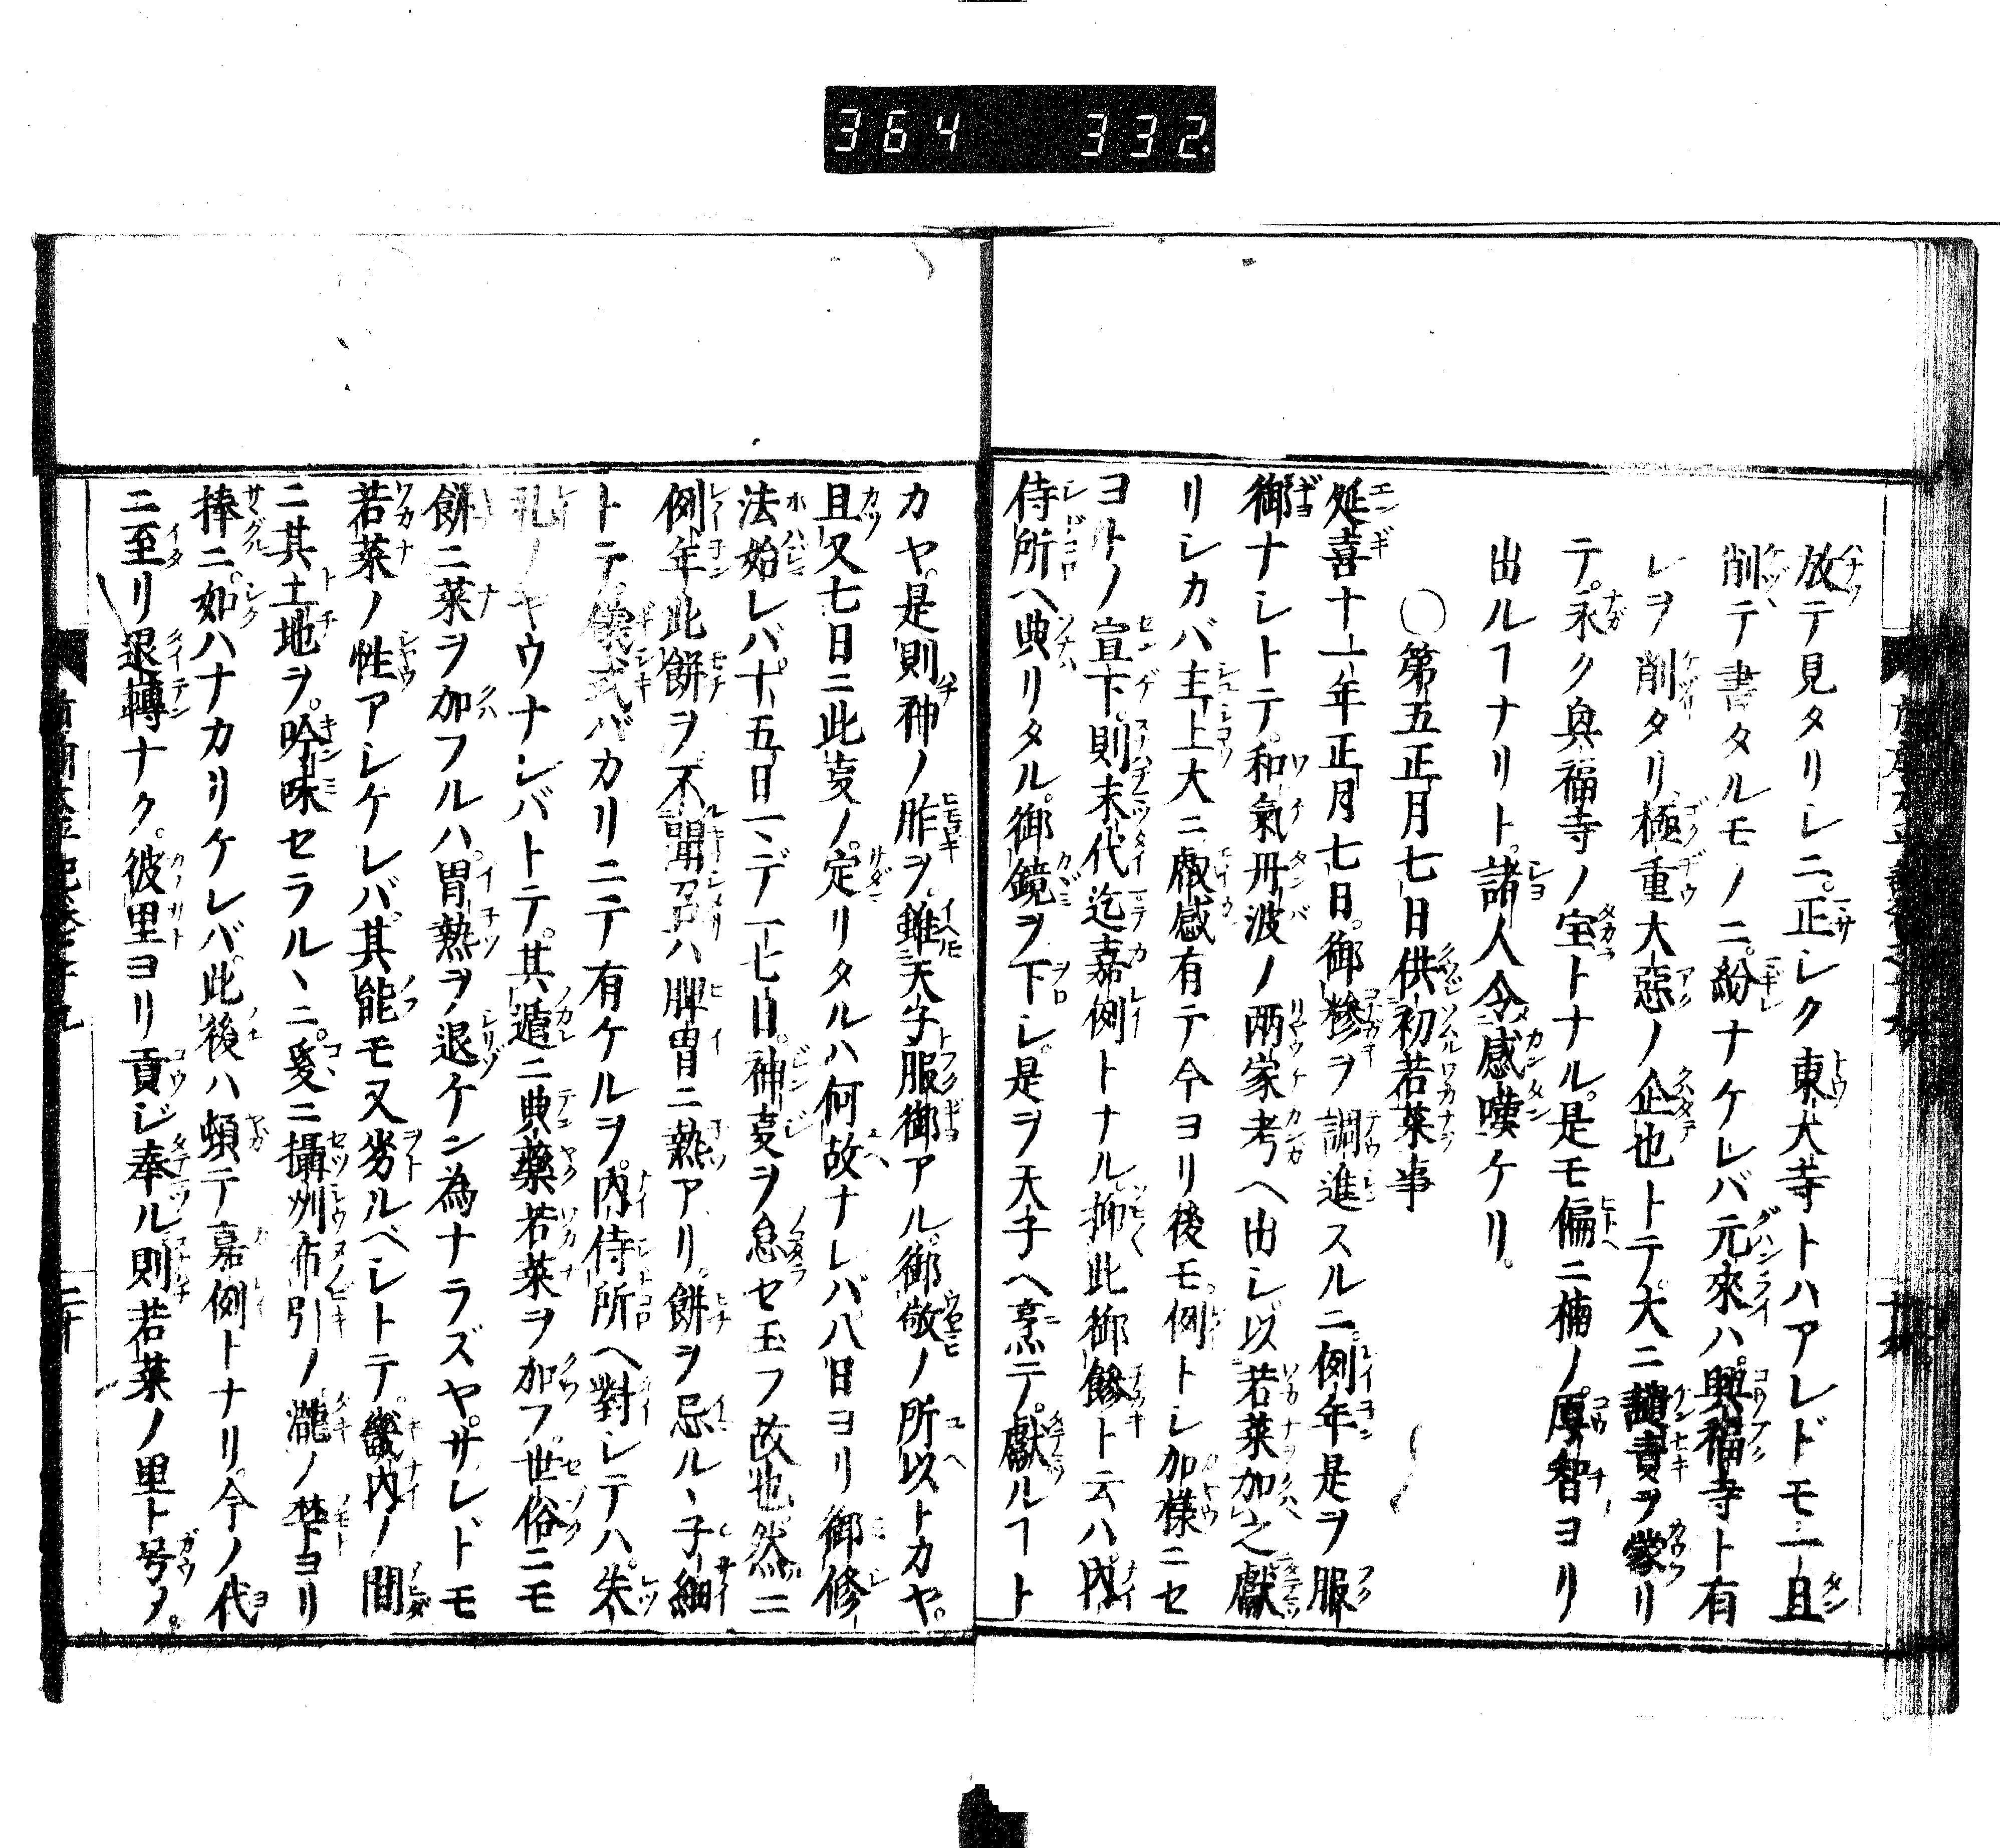 364 332.
放テ見タリシニ。正シク東大寺トハアレドモ一旦
削テ書タルモノニ。紛ナケレバ元來ハ興福寺ト有
シヲ削タリ。極重大惡ノ企也トテ。大ニ譴責ヲ蒙リ
テ。永ク興福寺ノ宝トナル。是モ偏ニ楠ノ厚智ヨリ
出ルヿナリト。諸人令感嘆ケリ。
〇第五正月七日供初若菜事
延喜十一年正月七日。御糝ヲ調進スルニ。例年是ヲ服
御ナシトテ。和氣丹波ノ両家考ヘ出シ以若菜加之獻
リシカバ主上大ニ叡感有テ今ヨリ後モ。例トシ加樣ニセ
ヨトノ宣下。則末代迄嘉例トナル抑此御糝ト云ハ。内
侍所ヘ典リタル。御鏡ヲ下シ。是ヲ天子ヘ烹テ。獻ルヿト
カヤ。是則神ノ胙ヲ。雖天子服御アル。御敬ノ所以トカヤ。
且又七日ニ此叓ノ。定リタルハ何故ナレバ八日ヨリ御修
法始レバ。十五日一デ一七日。神叓ヲ怠セ玉フ故也。然ニ
例年此餅ヲ不聞召ハ脾胃ニ熱アリ。餅ヲ忌ル丶子細
トテ。儀式バカリニテ有ケルヲ。内侍所ヘ對シテハ。失
礼ノヤウナレバトテ。其遁ニ典藥若菜ヲ加フ。世俗ニモ
餅ニ菜ヲ加フルハ。胃熱ヲ退ケン為ナラズヤ。サレドモ
若菜ノ性アシケレバ。其能モ又劣ルベシトテ。畿内ノ間
ニ其土地ヲ。吟味セラル丶ニ。爰ニ攝州布引ノ瀧ノ埜トヨリ
捧ニ。如ハナカリケレバ。此後ハ頓テ嘉例トナリ。今ノ代
ニ至リ退轉ナク。彼里ヨリ貢ジ奉ル則若菜ノ里ト号ノ。